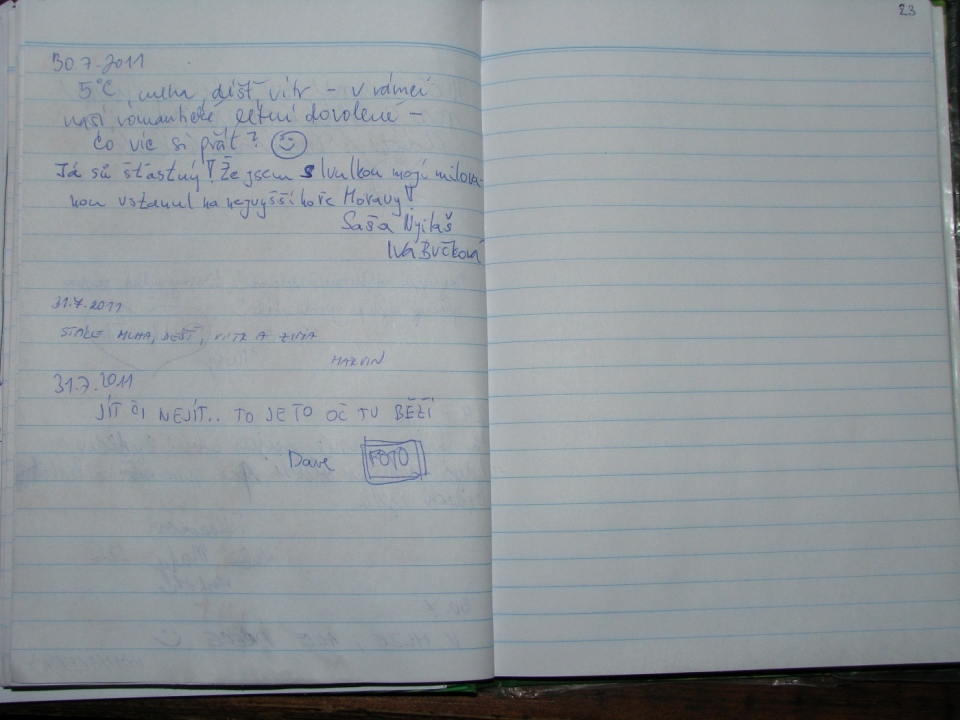 23
30.7.2011
5°C, mlha, déšť vítr - v rámci
naší romantické letní dovolené -
co víc si přát? ☺
Já sů šťastný! Že jsem s Ivulkou mojí milova-
nou vstanul na nejvyšší hoře Moravy!
Saša Nyitaš
Iva Bučková
31.7.2011
STÁLE MLHA, DEŠŤ, VÍTR A ZIMA
MARVIN
31.7.2011
JÍT ČI NEJÍT.. TO JE TO OČ TU BĚŽÍ
Dave FOTO